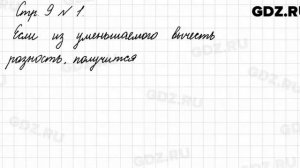 Стр. 9 № 1. GDZ.RU
Если из уменьшаемого вычесть
разность, получится